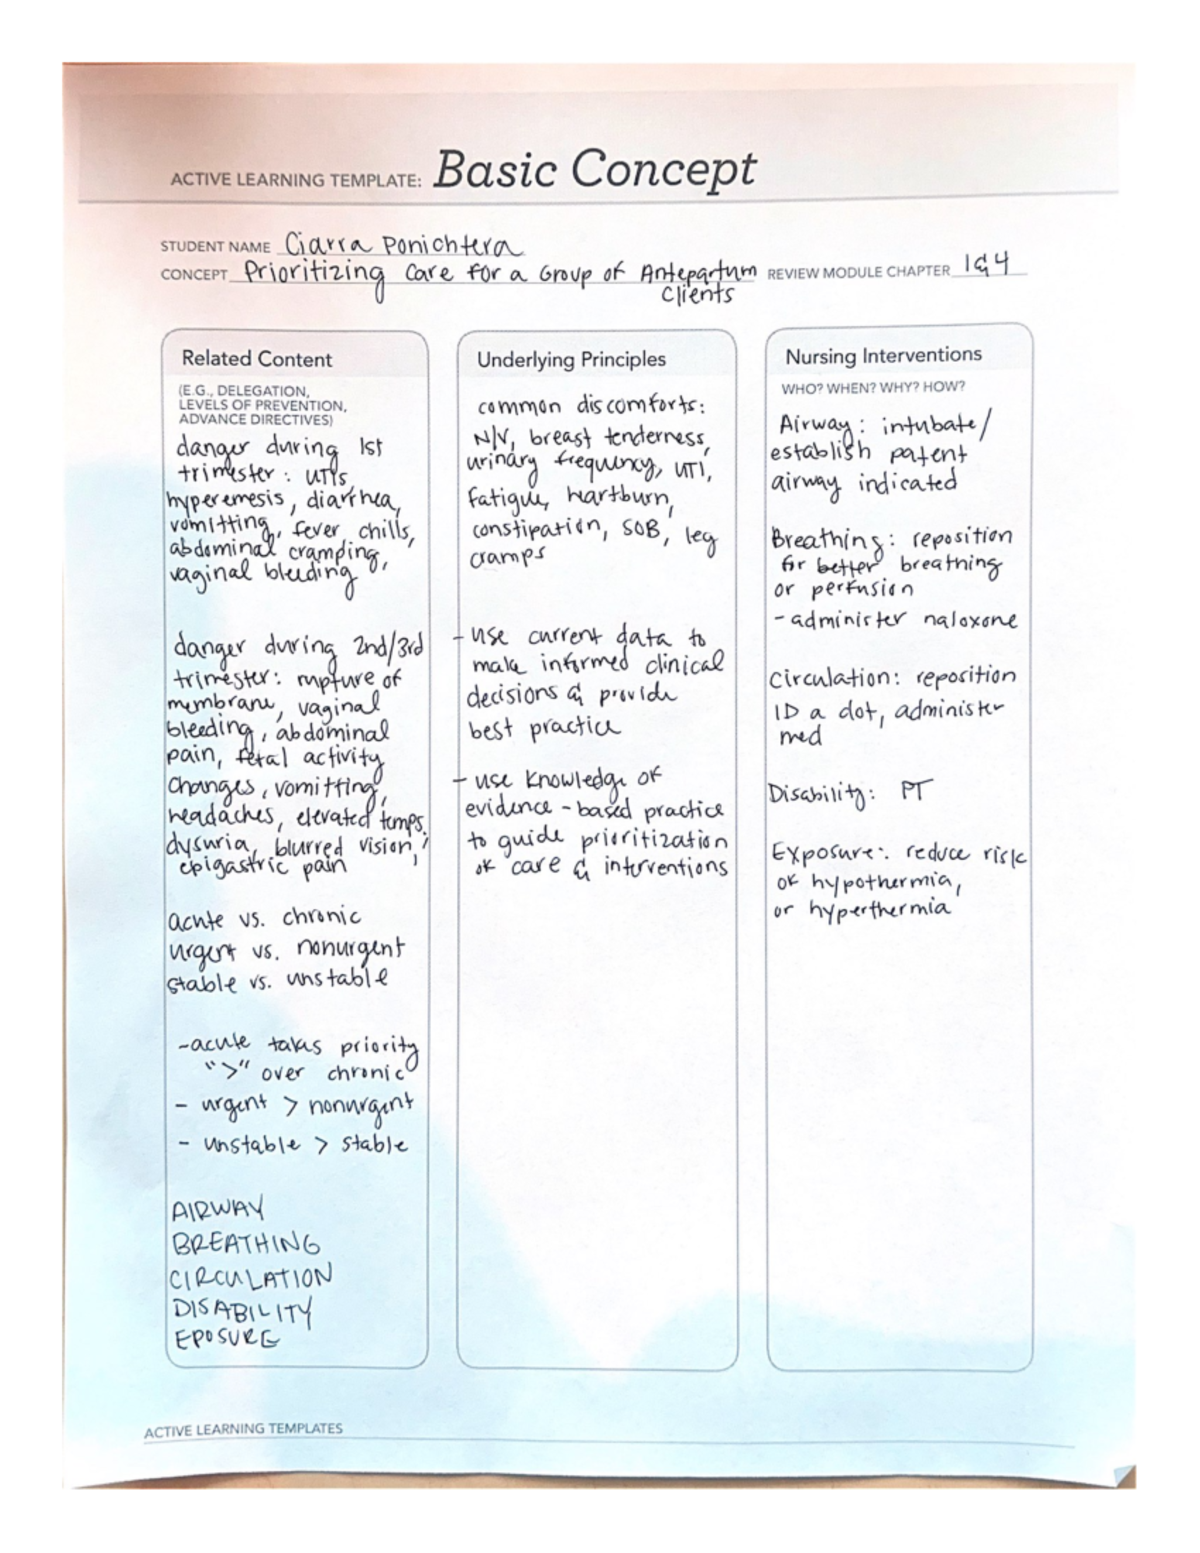 ACTIVE LEARNING TEMPLATE: Basic Concept
STUDENT NAME Ciarra Ponichtera
CONCEPT Prioritizing Care for a Group of Antepartum Clients
REVIEW MODULE CHAPTER 1&4
Related Content
(E.G., DELEGATION,
LEVELS OF PREVENTION,
ADVANCE DIRECTIVES)
danger during 1st
trimester: UTIs
hyperemesis, diarrhea,
vomitting, fever chills,
abdominal cramping,
vaginal bleeding
danger during 2nd/3rd
trimester: rupture of
membrane, vaginal
bleeding, abdominal
pain, fetal activity
changes, vomitting,
headaches, elevated temps,
dysuria, blurred vision,
epigastric pain
acute vs. chronic
urgent vs. nonurgent
stable vs. unstable
-acute takes priority
">" over chronic
- urgent > nonurgent
- unstable > stable
AIRWAY
BREATHING
CIRCULATION
DISABILITY
EPOSURE
Underlying Principles
common discomforts:
N/V, breast tenderness,
urinary frequency, UTI,
fatigue, heartburn,
constipation, SOB, leg
cramps
- use current data to
make informed clinical
decisions & provide
best practice
- use knowledge of
evidence-based practice
to guide prioritization
of care & interventions
Nursing Interventions
WHO? WHEN? WHY? HOW?
Airway: intubate/
establish patent
airway indicated
Breathing: reposition
for better breathing
or perfusion
- administer naloxone
Circulation: reposition
ID a dot, administer
med
Disability: PT
Exposure: reduce risk
of hypothermia,
or hyperthermia
ACTIVE LEARNING TEMPLATES